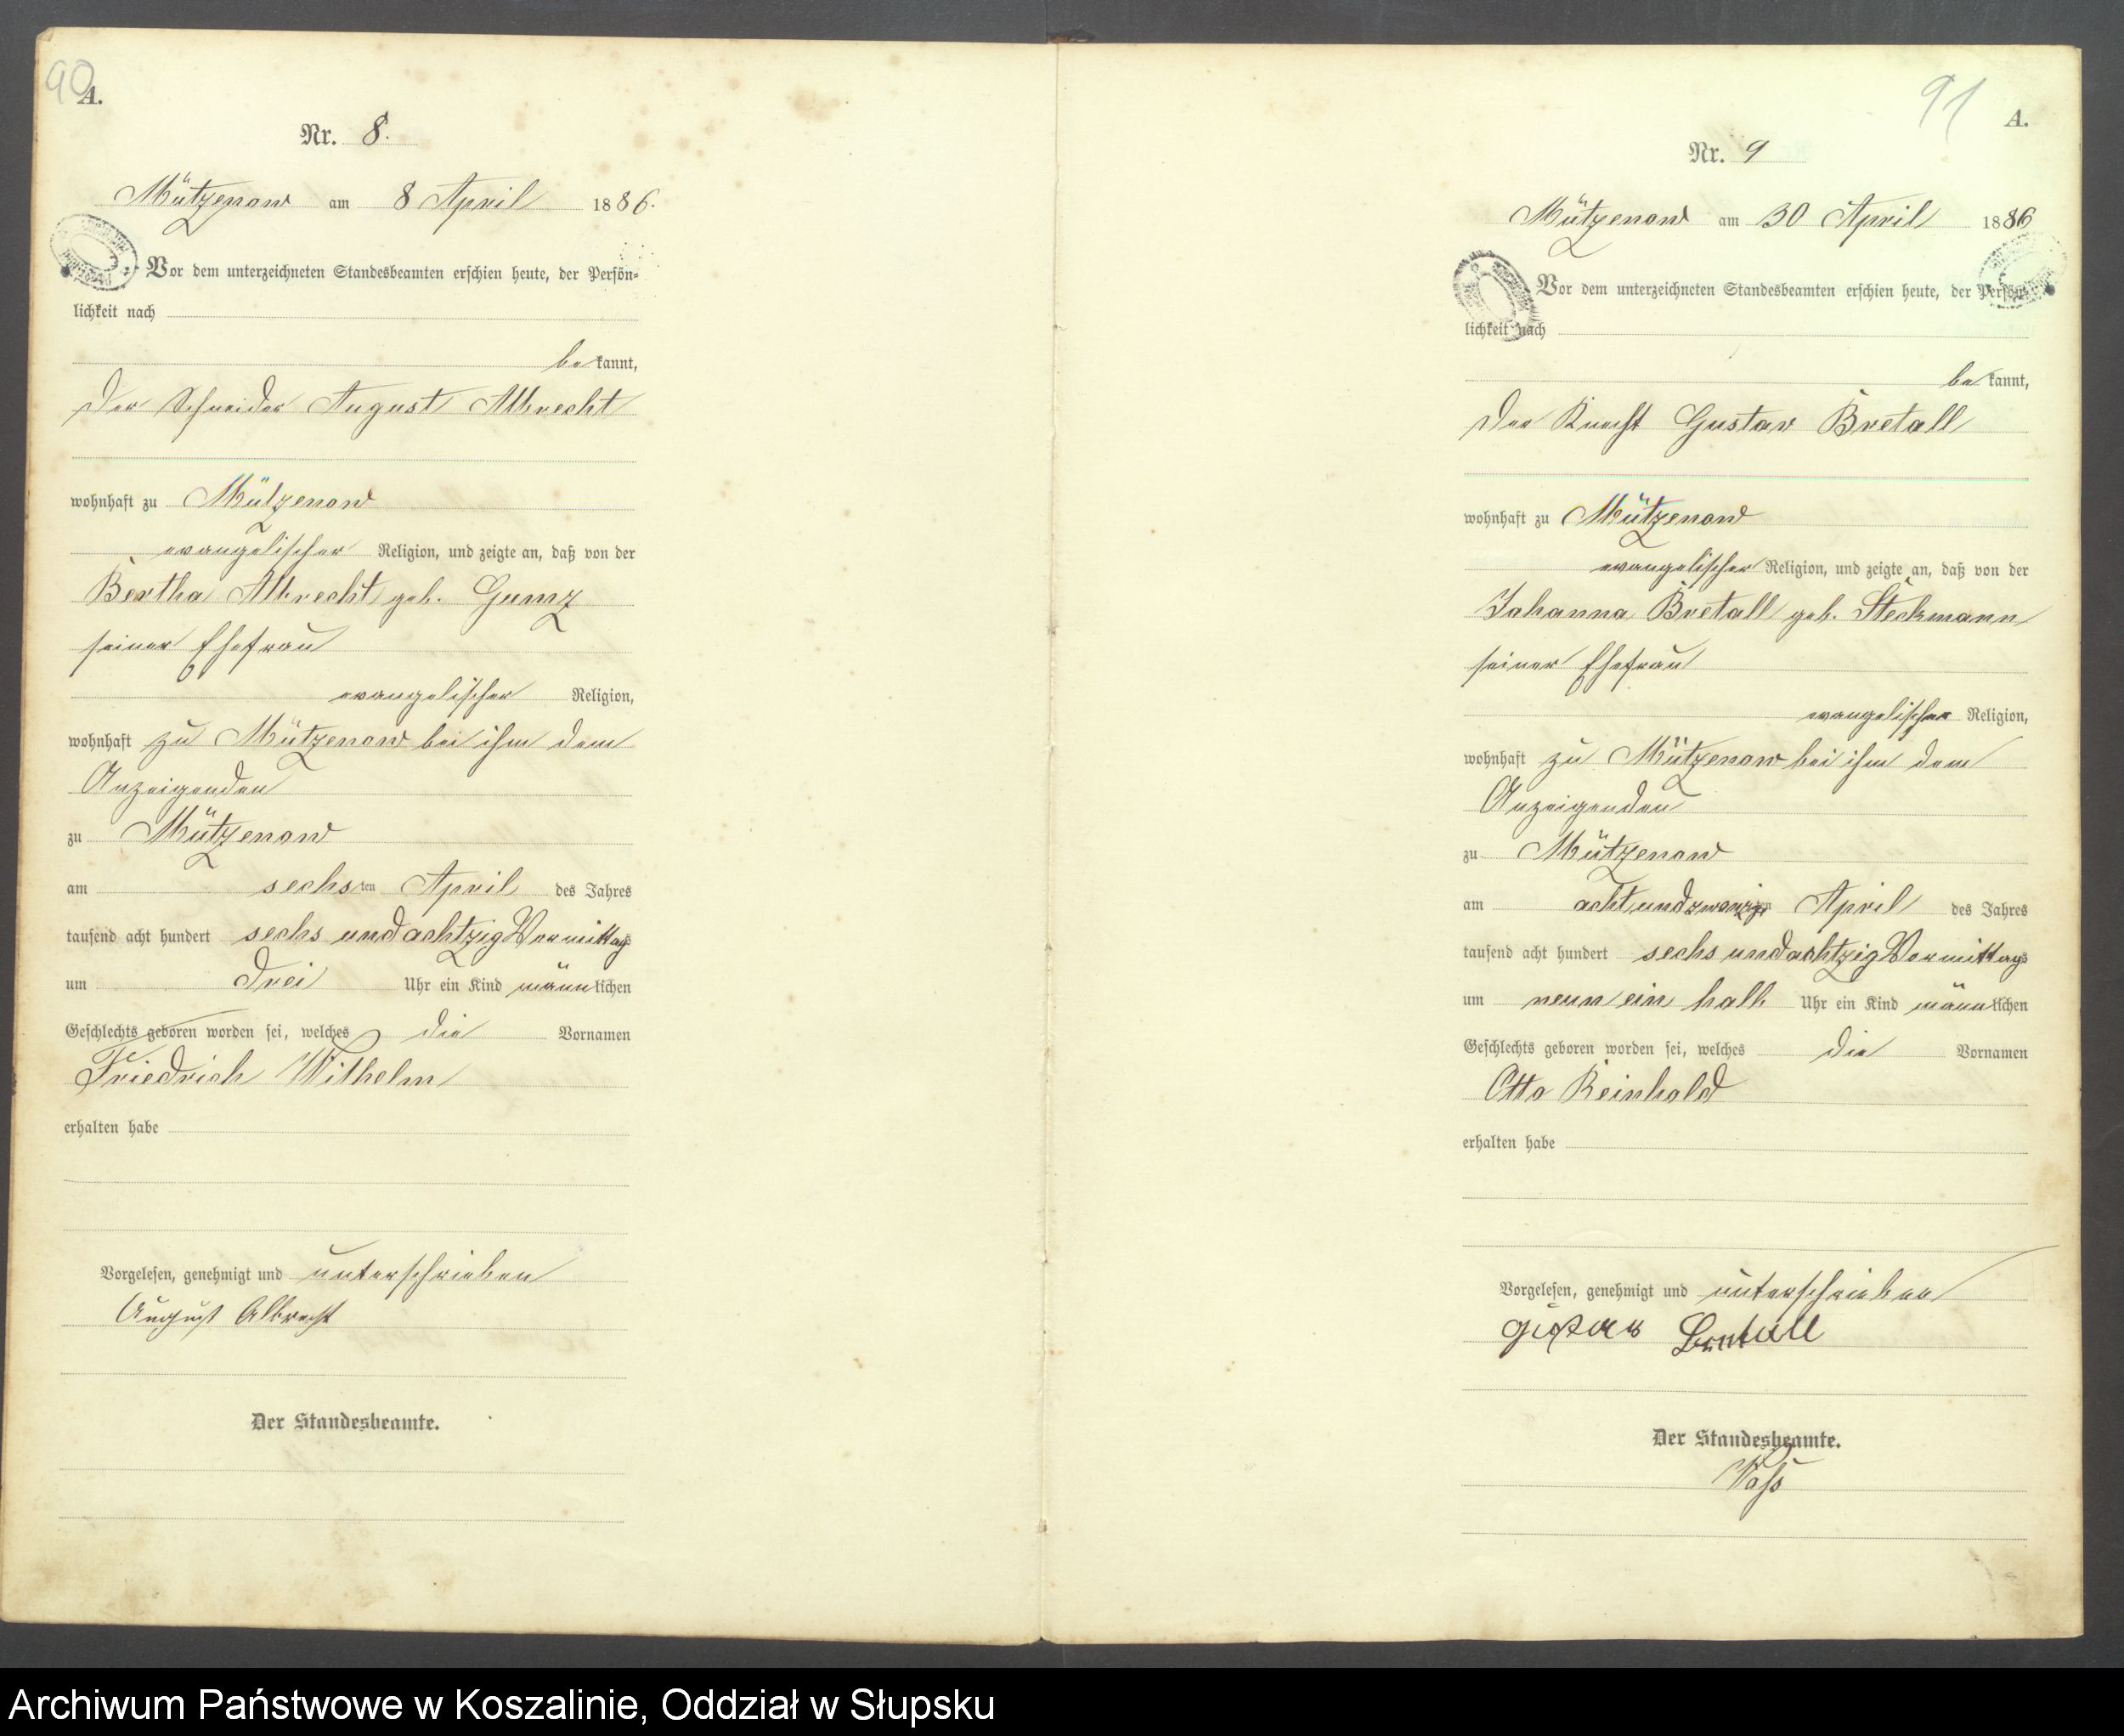 90
A.
Nr. 8.
Mützenow am 8 April 1886.
Vor dem unterzeichneten Standesbeamten erschien heute, der Persön-
lichkeit nach
bekannt,
der Schneider August Albrecht
wohnhaft zu Mützenow
evangelischer Religion, und zeigte an, daß von der
Bertha Albrecht geb. Gumz
seiner Ehefrau
evangelischer Religion,
wohnhaft zu Mützenow bei ihm dem
Anzeigenden
zu Mützenow
am sechsten April des Jahres
tausend acht hundert sechs und achtzig Vormittags
um drei Uhr ein Kind männlichen
Geschlechts geboren worden sei, welches die Vornamen
Friedrich Wilhelm
erhalten habe
Vorgelesen, genehmigt und unterschrieben
August Albrecht
Der Standesbeamte.
91
A.
Nr. 9
Mützenow am 30 April 1886
Vor dem unterzeichneten Standesbeamten erschien heute, der Persön-
lichkeit nach
bekannt,
der Knecht Gustav Bretall
wohnhaft zu Mützenow
evangelischer Religion, und zeigte an, daß von der
Johanna Bretall geb. Steckmann
seiner Ehefrau
evangelischer Religion,
wohnhaft zu Mützenow bei ihm dem
Anzeigenden
zu Mützenow
am acht und zwanzigsten April des Jahres
tausend acht hundert sechs und achtzig Vormittags
um neun ein halb Uhr ein Kind männlichen
Geschlechts geboren worden sei, welches die Vornamen
Otto Reinhold
erhalten habe
Vorgelesen, genehmigt und unterschrieben
Gustav Bretall
Der Standesbeamte.
Archiwum Państwowe w Koszalinie, Oddział w Słupsku